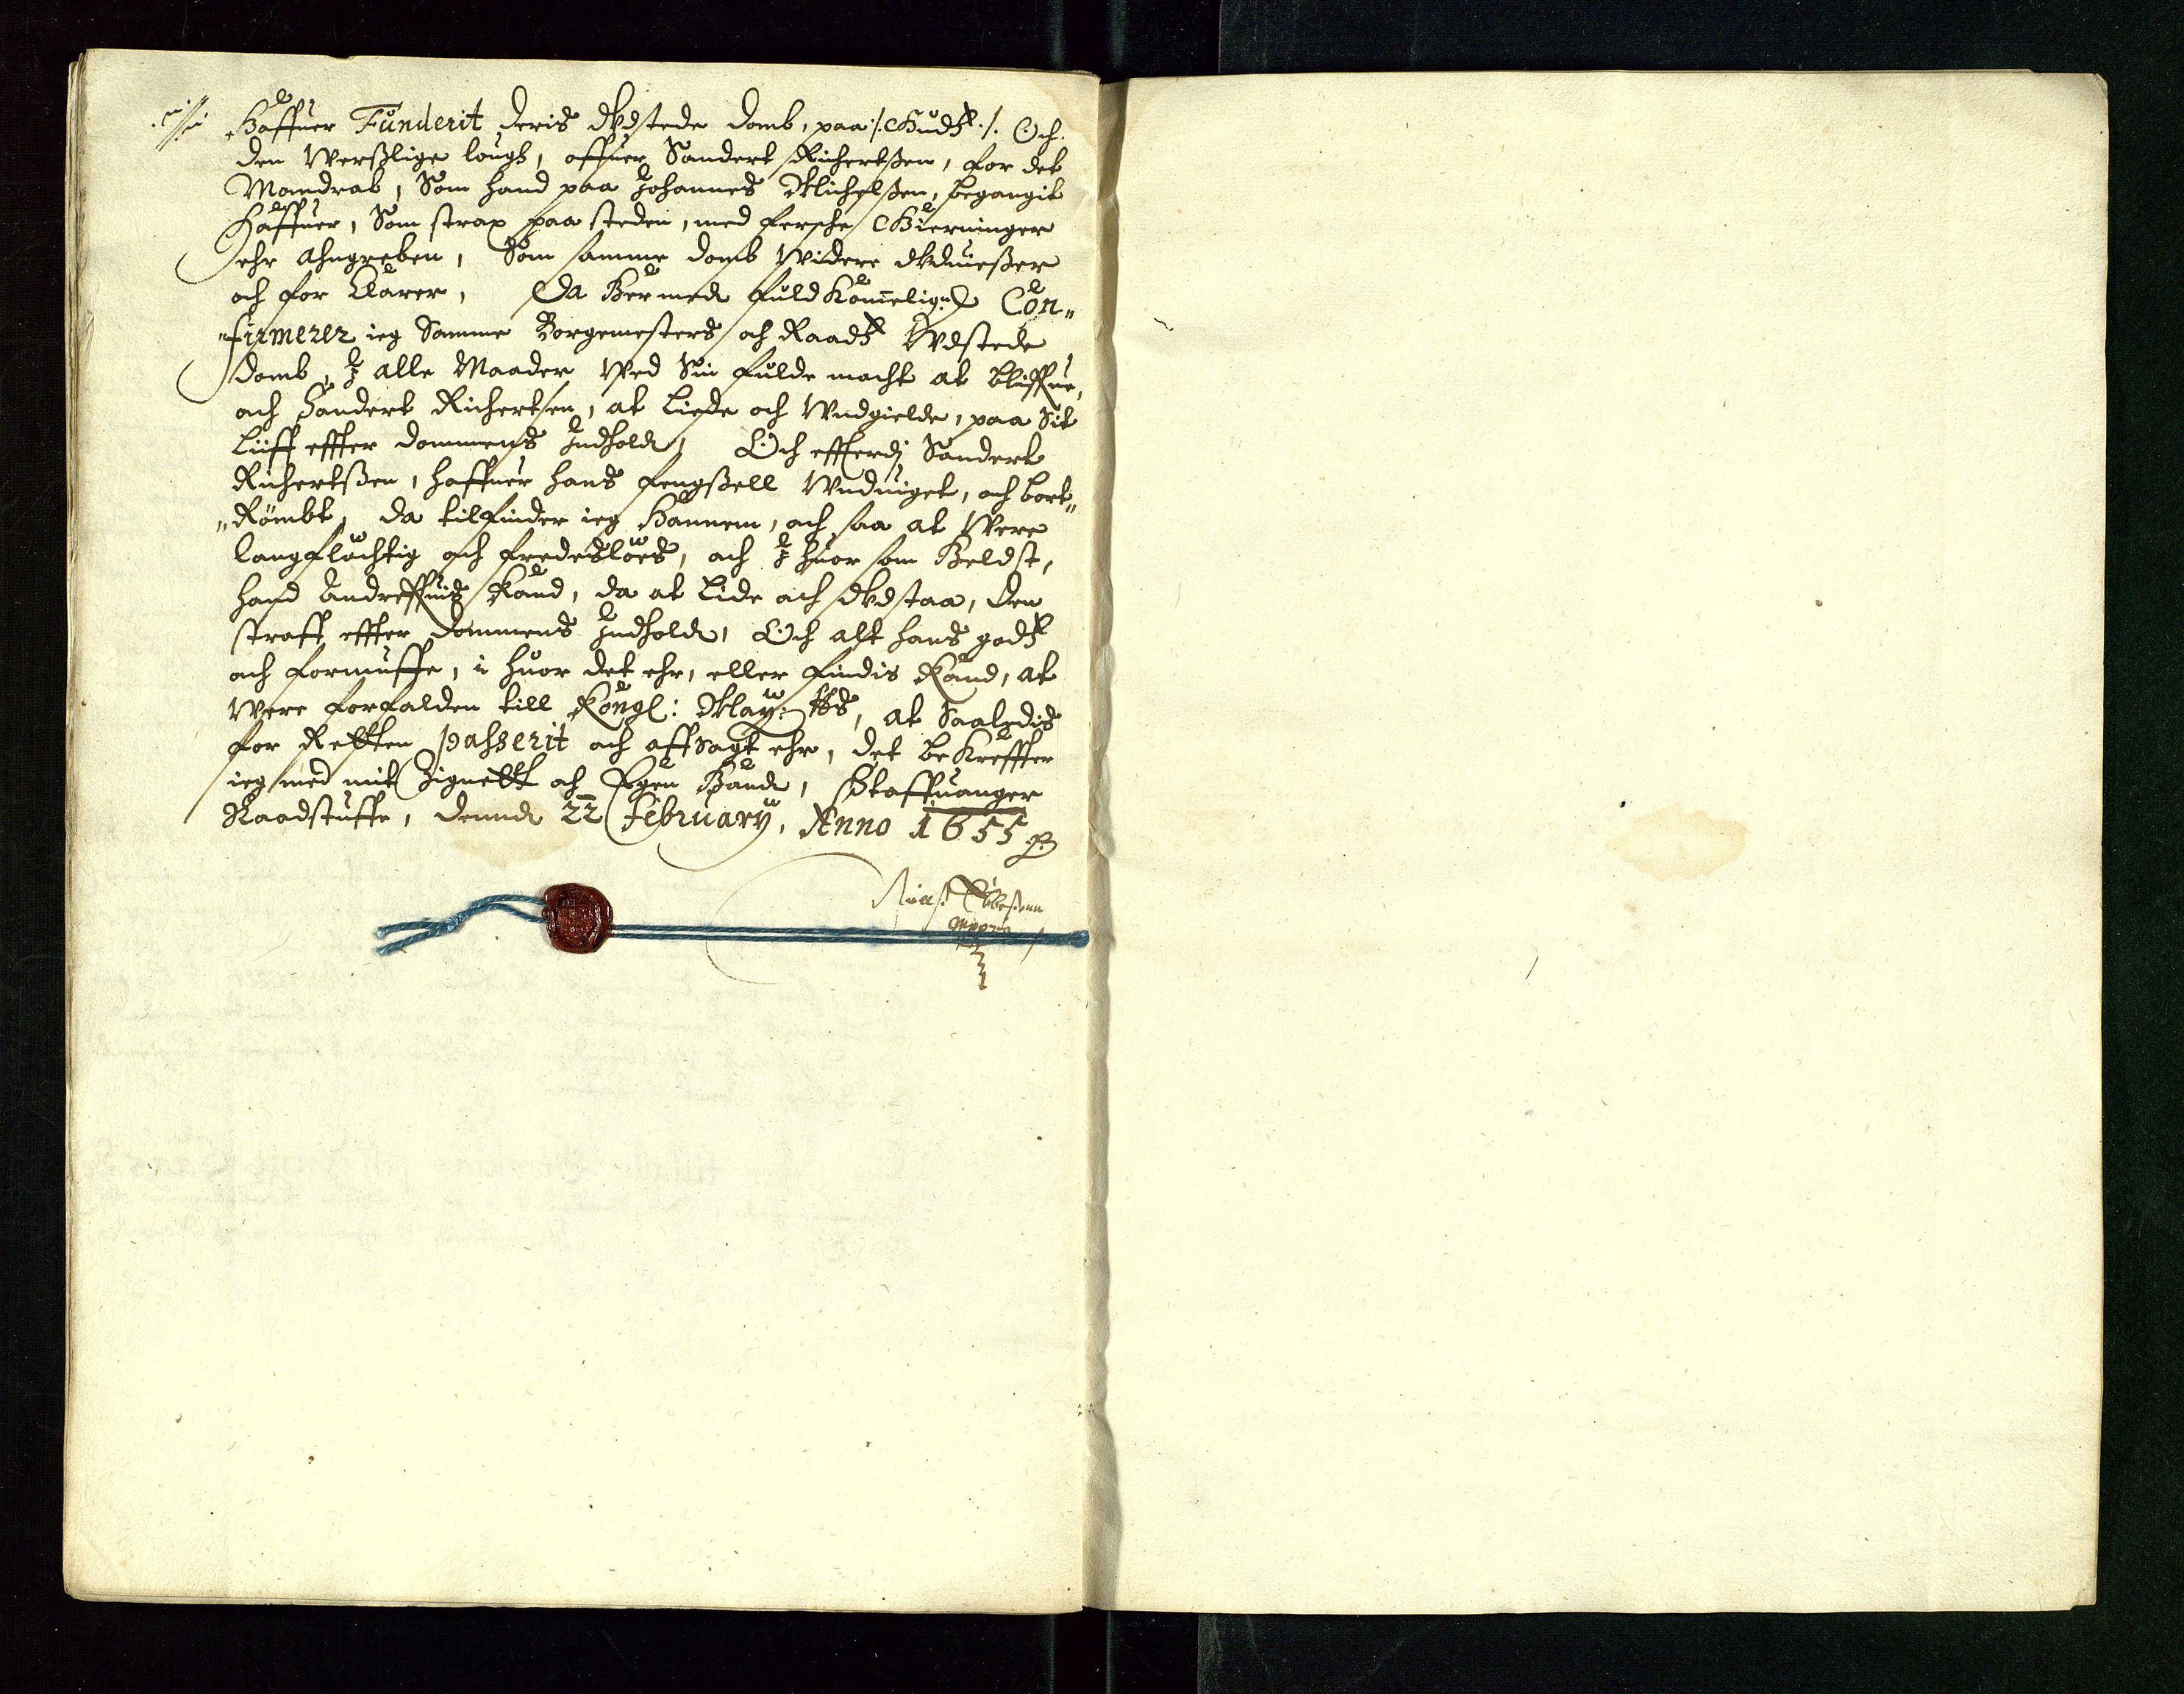 Haffuer Funderit deris Udstede domb, paa /: Gudtz :/ Och
den Werßlige lough, offuer Sandert Richertßen, for det
Mandrab, Som hand paa Johannes Michelßen, begangit
Haffuer, Som strax paa steden, med fersche Gierninger
ehr ahngreben, Som samme domb widere Uduießer
och for Klarer, Da Hermed fuldKommelig: Con„
„firmerer ieg Samme Borgemesters och Raadtz Wdstede
domb, J alle Maader wed Sin fulde macht at bliffue,
och Sandert Richertsen, at Liede och Wndgielde, paa Sit
Liiff effter dommens Jndhold, Och effterdj Sandert
Richertßen, haffuer hans fengßell Wnduiget, och bort„
„Römbt, da tilfinder ieg Hannem, och saa at Were
langflüchtig och fredesløes, och J huor som Heldst,
hand andreffuis Kand, da at Lide och Udstaa, den
straff effter dommens Jndhold, Och alt hans godtz
och formuffe, i huor det ehr, eller findis Kand, at
Were forfalden till Kongl: May: tts, at Saaledis
for Retten passerit och affsagt ehr, det beKreffter
ieg med mit Zignett och Egen Hand, Staffuanger
Raadstuffe, dend 22 February, Anno 1655
Ebbeßenn